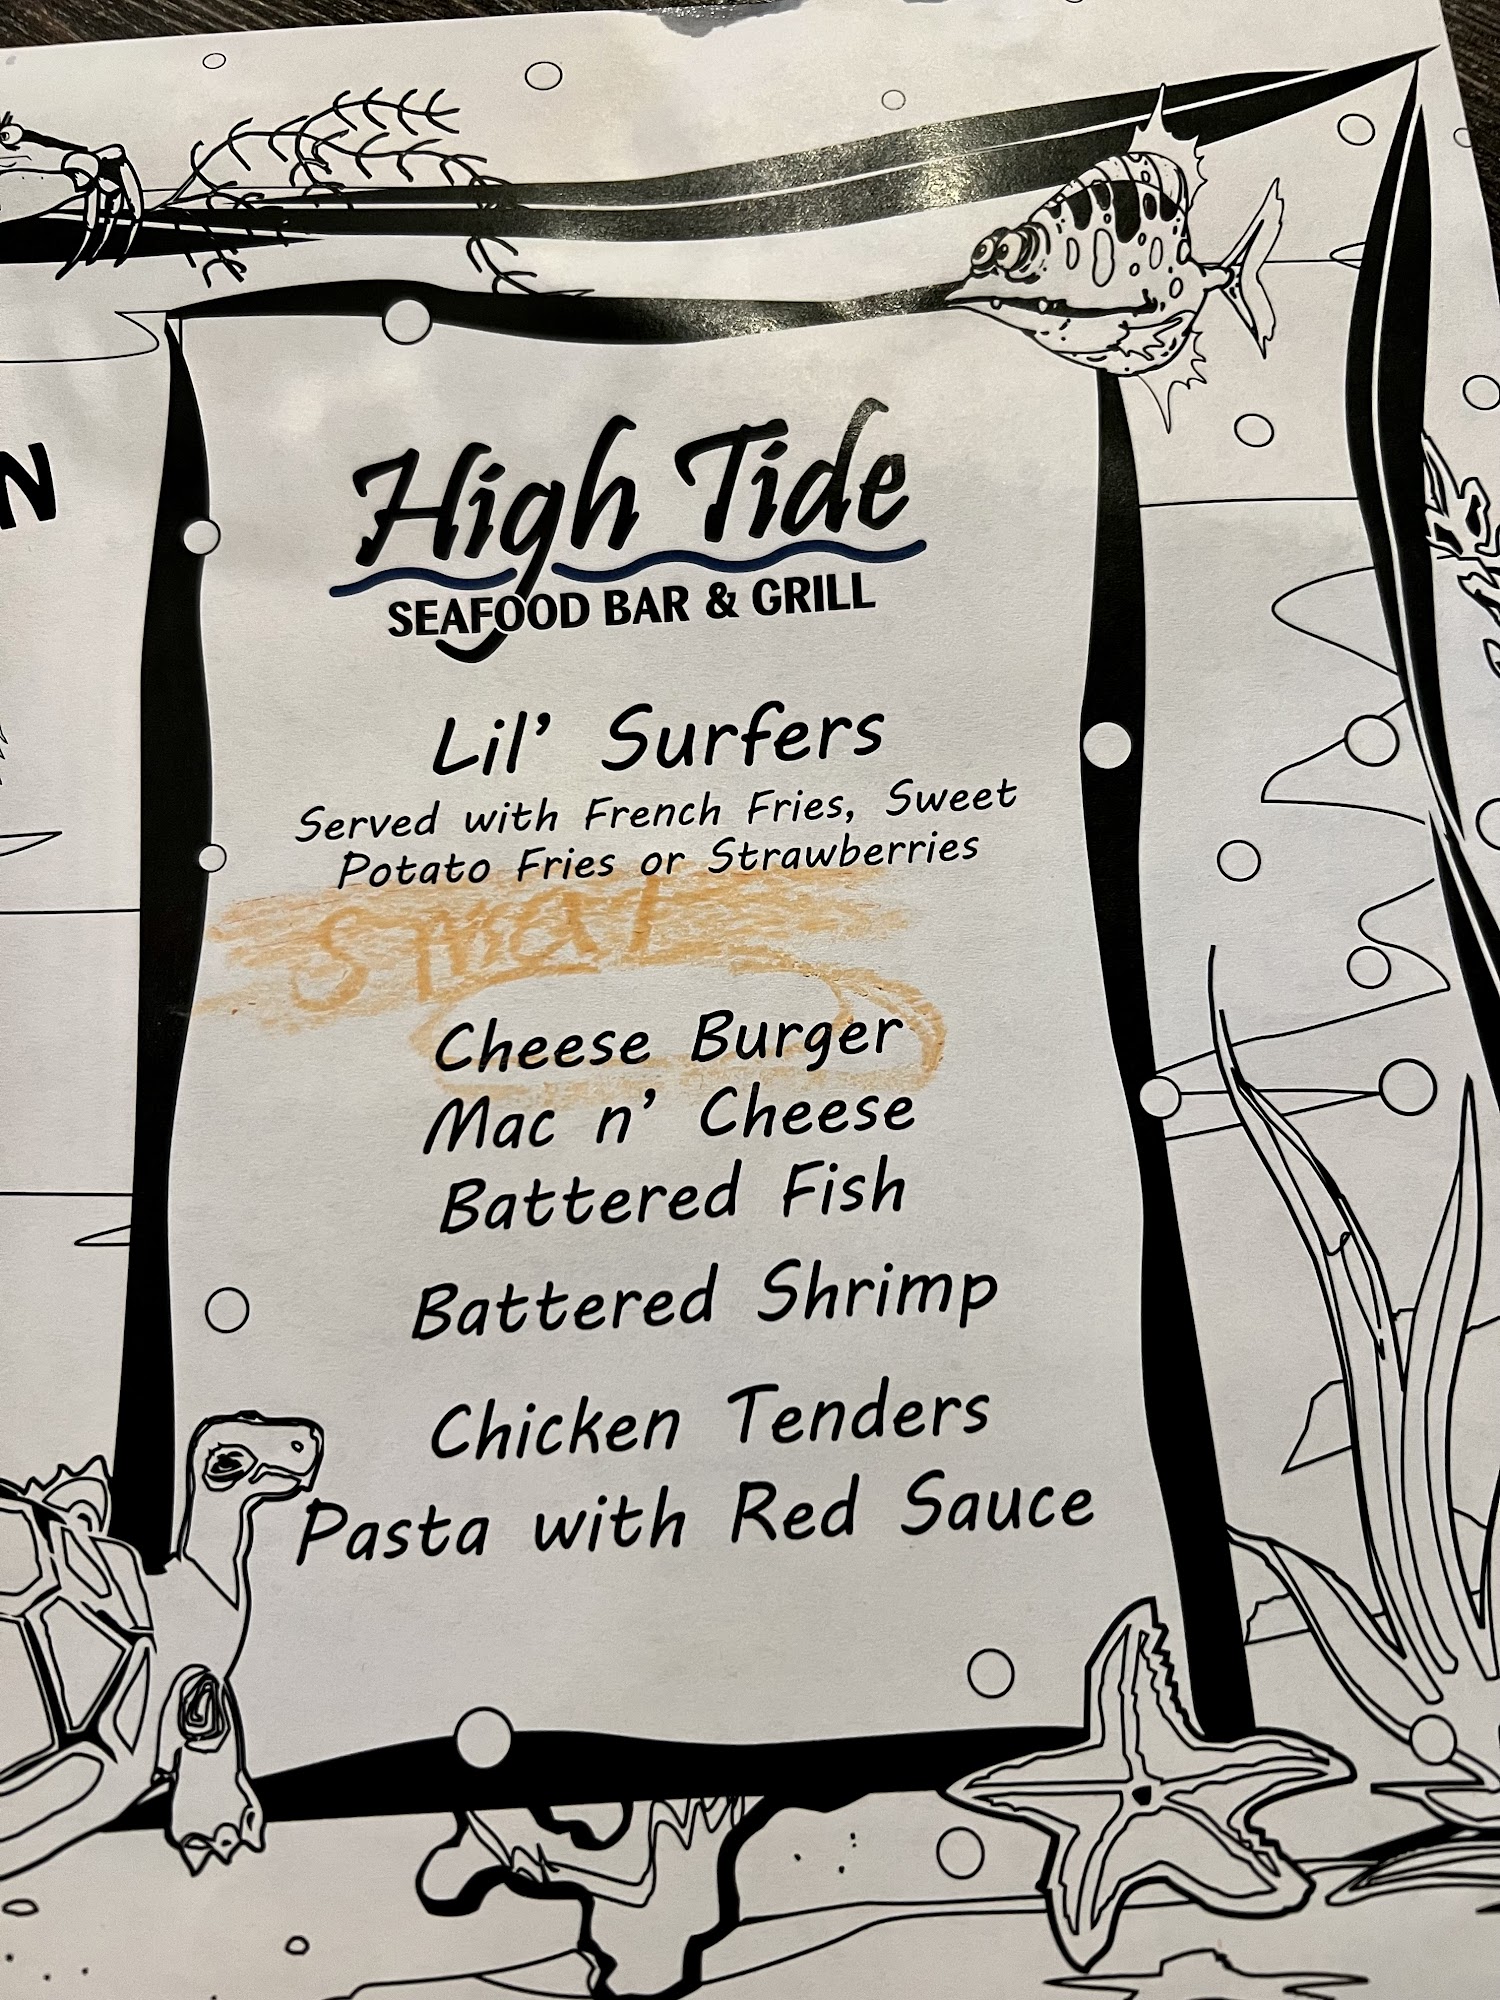 N
High Tide
SEAFOOD BAR & GRILL
Lil' Surfers
Served with French Fries, Sweet
Potato Fries or Strawberries
Cheese Burger
Mac n' Cheese
Battered Fish
Battered Shrimp
Chicken Tenders
Pasta with Red Sauce